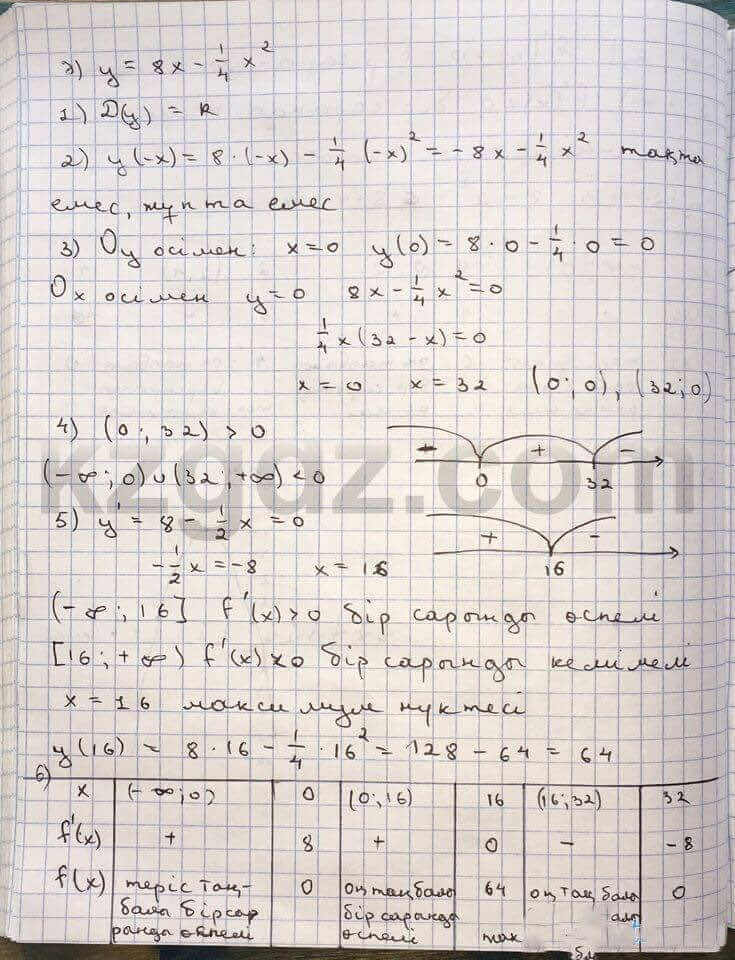 э) y = 8x - 1/4 x²
1) D(y) = R
2) y(-x) = 8·(-x) - 1/4 (-x)² = -8x - 1/4 x² тақта
емес, жұпта емес
3) Oy осімен: x=0 y(0) = 8·0 - 1/4·0 = 0
Ox осімен y=0 8x - 1/4 x² = 0
1/4 x(32 - x) = 0
x = 0 x = 32 (0;0), (32;0)
4) (0;32) > 0
- + -
(-∞;0)∪(32;+∞) < 0
0 32
kzgaz.com
5) y' = 8 - 1/2 x = 0
+ -
-1/2 x = -8 x = 16
16
(-∞;16] f'(x)>0 бір сарынды өспелі
[16;+∞) f'(x)<0 бір сарынды кемімелі
x = 16 максимум нүктесі
y(16) = 8·16 - 1/4·16² = 128 - 64 = 64
6) x (-∞;0) 0 (0;16) 16 (16;32) 32
f'(x) + 8 + 0 - -8
f(x) теріс таң- 0 оң таңбалы 64 оң таң балы 0
балы бірсар бір саранды
ранды өспелі өспелі max